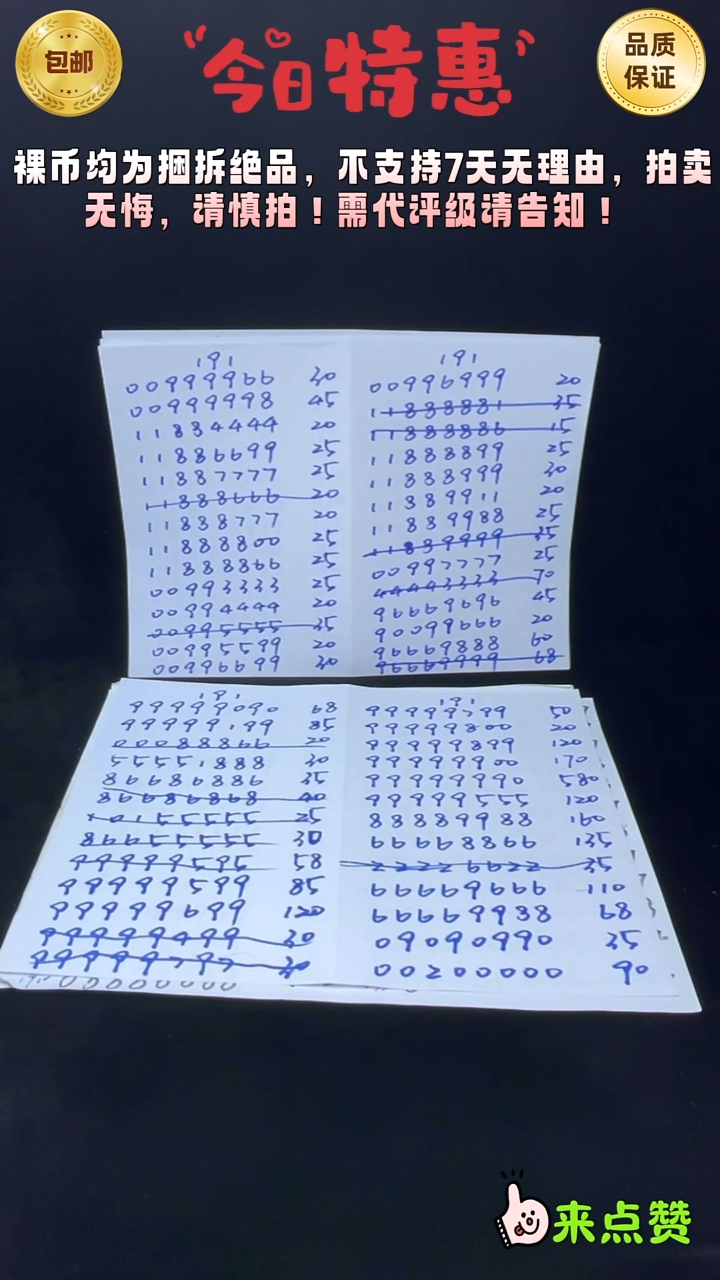 包邮
“今日特惠”
品质
保证
裸币均为捆拆绝品，不支持7天无理由，拍卖
无悔，请慎拍！需代评级请告知！
191
00999966 30
00999998 45
11884444 20
11886699 25
11887777 25
11888666 20
11888777 20
11888800 25
11888866 25
00993333 25
00994444 20
00995555 35
00995599 20
00996699 30
191
00996999 20
11888881 35
11888886 15
11888899 25
11888999 30
11889911 20
11889988 25
11889999 35
00997777 25
44443333 70
96669696 45
90099666 20
96669888 60
96669999 68
191
99999090 68
99999199 85
00088866 20
55551888 30
86686886 35
86686868 40
55555 25
86655555 30
99999595 58
99999599 85
99999699 120
99999499 30
99999797 30
191
99999799 50
99999800 20
99999899 120
99999900 170
99999990 580
99999555 120
88889988 160
66668866 135
22226622 35
66669666 110
66669988 68
09090990 35
00200000 90
来点赞